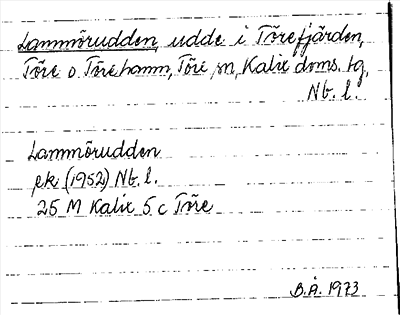 Lammörudden, udde i Törefjärden,
Töre o Törehamn, Töre sn, Kalix doms. tg,
Nb. l.
Lammörudden
ek (1952) Nb. l.
25 M Kalix 5 c Töre
B.Å. 1973